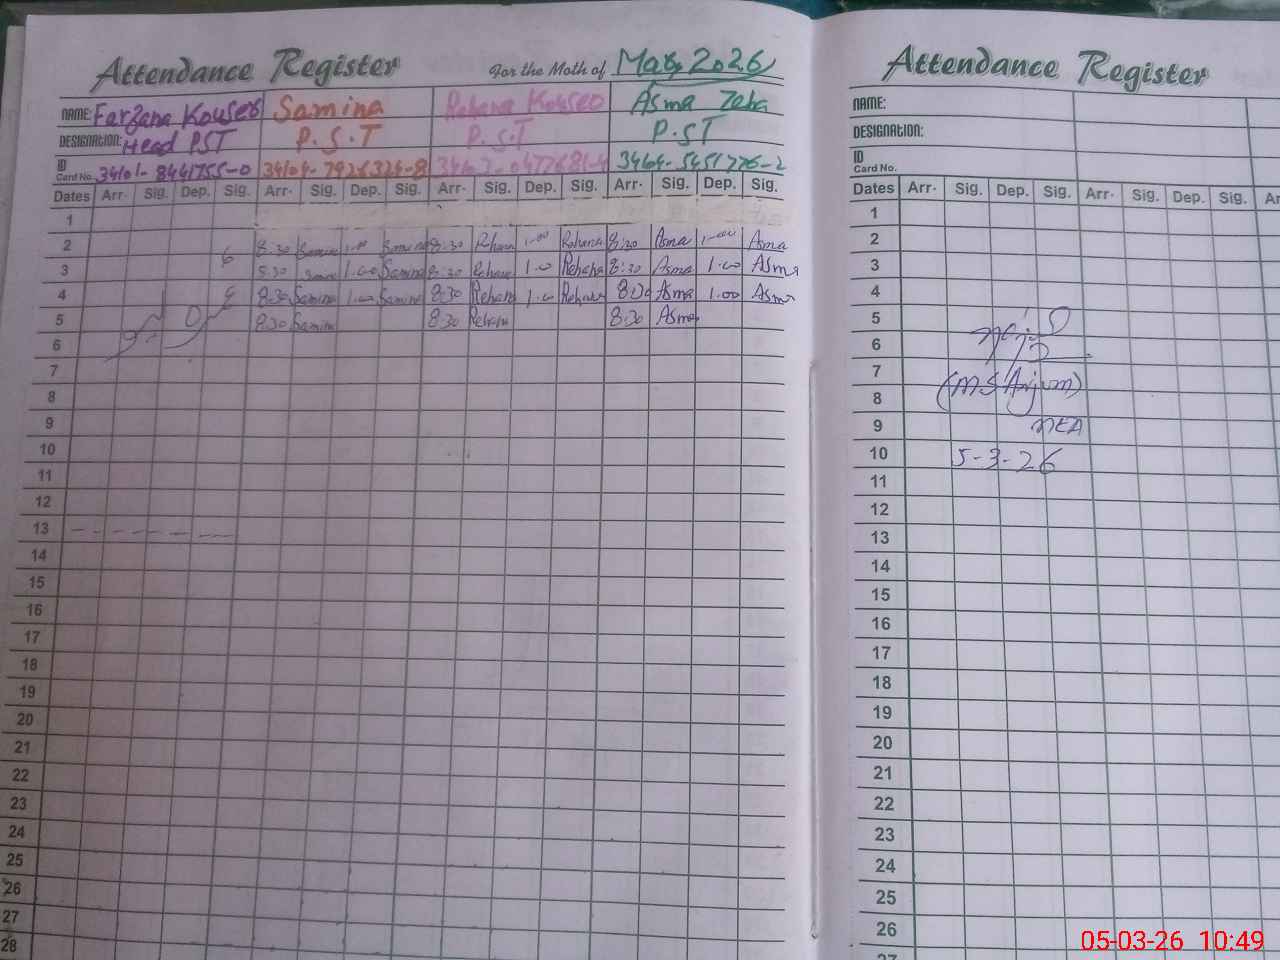 Attendance Register For the Moth of Mar, 2026
NAME: Farzana Kouser Samina Rehana Kouser Asma Zeba
DESIGNATION: Head PST P.S.T P.S.T P.ST
ID
Card No. 34101-8441755-0
Dates Arr. Sig. Dep. Sig. Arr. Sig. Dep. Sig. Arr. Sig. Dep. Sig. Arr. Sig. Dep. Sig.
1
2 8:30 Samina 1.00 Samina 8:30 Rehana 1.00 Rehana 8:30 Asma 1.00 Asma
3 8:30 1.00 Samina 8:30 Rehana 1.00 Rehana 8:30 Asma 1.00 Asma
4 8:30 Samina 1.00 Samina 8:30 Rehana 1.00 Rehana 8:30 Asma 1.00 Asma
5 8:30 Samina 8:30 Rehana 8:30 Asma
6
7
8
9
10
11
12
13
14
15
16
17
18
19
20
21
22
23
24
25
26
27
28
Attendance Register
NAME:
DESIGNATION:
ID
Card No.
Dates Arr. Sig. Dep. Sig. Arr. Sig. Dep. Sig.
1
2
3
4
5
6
7
8
9
10
11
12
13
14
15
16
17
18
19
20
21
22
23
24
25
26
27
(MS Anjum)
MEA
5-3-26
05-03-26 10:49